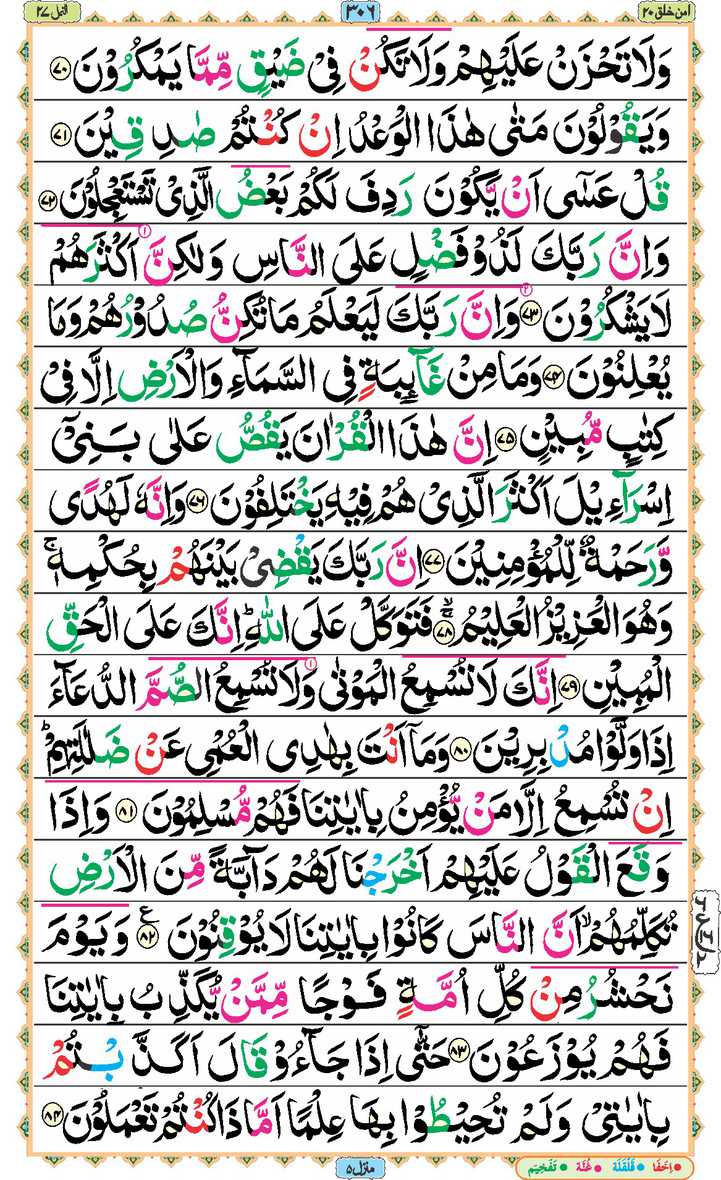 امن خلق ۲۰ ۳۰۶ النمل ۲۷
وَلَا تَحْزَنْ عَلَيْهِمْ وَلَا تَكُنْ فِیْ ضَيْقٍ مِّمَّا يَمْكُرُوْنَ ۷۰
وَيَقُوْلُوْنَ مَتٰى هٰذَا الْوَعْدُ اِنْ كُنْتُمْ صٰدِقِيْنَ ۷۱
قُلْ عَسٰٓى اَنْ يَّكُوْنَ رَدِفَ لَكُمْ بَعْضُ الَّذِیْ تَسْتَعْجِلُوْنَ ۷۲
وَاِنَّ رَبَّكَ لَذُوْ فَضْلٍ عَلَى النَّاسِ وَلٰكِنَّ اَكْثَرَهُمْ
لَا يَشْكُرُوْنَ ۷۳ وَاِنَّ رَبَّكَ لَيَعْلَمُ مَا تُكِنُّ صُدُوْرُهُمْ وَمَا
يُعْلِنُوْنَ ۷۴ وَمَا مِنْ غَآئِبَةٍ فِی السَّمَآءِ وَالْاَرْضِ اِلَّا فِیْ
كِتٰبٍ مُّبِيْنٍ ۷۵ اِنَّ هٰذَا الْقُرْاٰنَ يَقُصُّ عَلٰى بَنِیْٓ
اِسْرَآءِيْلَ اَكْثَرَ الَّذِیْ هُمْ فِيْهِ يَخْتَلِفُوْنَ ۷۶ وَاِنَّهٗ لَهُدًى
وَّرَحْمَةٌ لِّلْمُؤْمِنِيْنَ ۷۷ اِنَّ رَبَّكَ يَقْضِیْ بَيْنَهُمْ بِحُكْمِهٖ ۚ
وَهُوَ الْعَزِيْزُ الْعَلِيْمُ ۷۸ فَتَوَكَّلْ عَلَى اللّٰهِ ؕ اِنَّكَ عَلَى الْحَقِّ
الْمُبِيْنِ ۷۹ اِنَّكَ لَا تُسْمِعُ الْمَوْتٰى وَلَا تُسْمِعُ الصُّمَّ الدُّعَآءَ
اِذَا وَلَّوْا مُدْبِرِيْنَ ۸۰ وَمَآ اَنْتَ بِهٰدِی الْعُمْیِ عَنْ ضَلٰلَتِهِمْ ؕ
اِنْ تُسْمِعُ اِلَّا مَنْ يُّؤْمِنُ بِاٰيٰتِنَا فَهُمْ مُّسْلِمُوْنَ ۸۱ وَاِذَا
وَقَعَ الْقَوْلُ عَلَيْهِمْ اَخْرَجْنَا لَهُمْ دَآبَّةً مِّنَ الْاَرْضِ
تُكَلِّمُهُمْ ۙ اَنَّ النَّاسَ كَانُوْا بِاٰيٰتِنَا لَا يُوْقِنُوْنَ ع ۸۲ وَيَوْمَ
نَحْشُرُ مِنْ كُلِّ اُمَّةٍ فَوْجًا مِّمَّنْ يُّكَذِّبُ بِاٰيٰتِنَا
فَهُمْ يُوْزَعُوْنَ ۸۳ حَتّٰٓى اِذَا جَآءُوْ قَالَ اَكَذَّبْتُمْ
بِاٰيٰتِیْ وَلَمْ تُحِيْطُوْا بِهَا عِلْمًا اَمَّا ذَا كُنْتُمْ تَعْمَلُوْنَ ۸۴
منزل ۵
اِخفَا قَلْقَلَة غُنَّة تَفْخِيْم